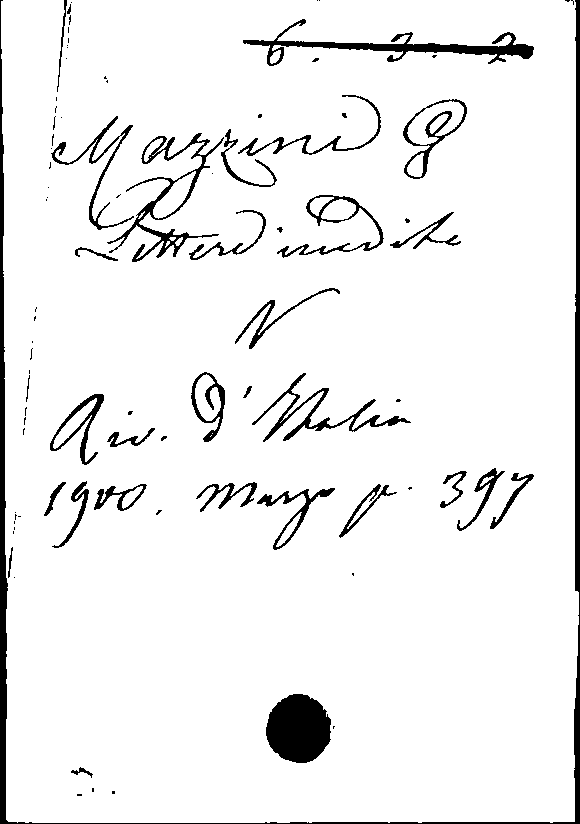 6. 3. 2
Mazzini G
Lettere inedite
V
Riv. d'Italia
1900. Marzo p. 397